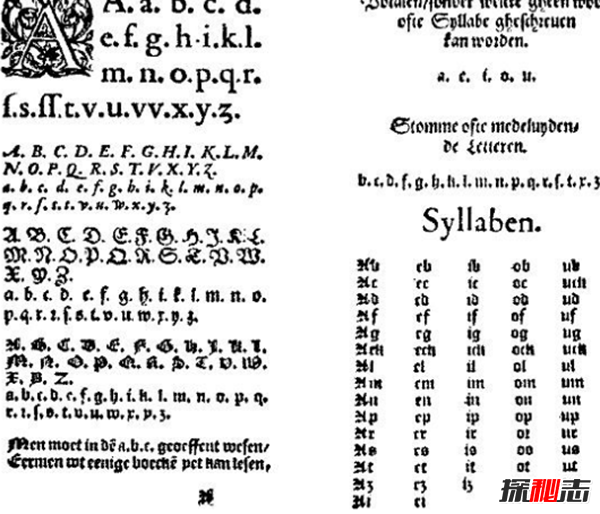 A. a. b. c. d.
e. f. g. h. i. k. l.
m. n. o. p. q. r.
ſ. s. ſſ. t. v. u. vv. x. y. ʒ.
A. B. C. D. E. F. G. H. I. K. L. M.
N. O. P. Q. R. S. T. V. X. Y. Z.
a. b. c. d. e. f. g. h. i. k. l. m. n. o. p.
q. r. ſ. s. t. v. u. w. x. y. z.
A. B. C. D. E. F. G. H. J. K. L.
M. N. O. P. Q. R. S. T. V. W.
X. Y. Z.
a. b. c. d. e. f. g. h. i. k. l. m. n. o.
p. q. r. ꝛ. ſ. s. t. v. u. w. x. y. z.
A. B. C. D. E. F. G. H. I. K. L.
M. N. O. P. Q. R. S. T. V. W.
X. Y. Z.
a. b. c. d. e. f. g. h. i. k. l. m. n. o. p. q.
r. ꝛ. ſ. s. t. v. u. w. x. y. z.
Men moet in dē a.b.c. geoeffent wesen/
Eermen wt eenige boeckē yet kan lesen,
A
ofte Syllabe gheschreuen
kan worden.
a. e. i. o. u.
Stomme ofte medeluyden/
de Letteren.
b. c. d. f. g. h. k. l. m. n. p. q. r. ſ. t. x. z
Syllaben.
Ab eb ib ob ub
Ac ec ic oc uc
Ad ed id od ud
Af ef if of uf
Ag eg ig og ug
Ack eck ick ock uck
Al el il ol ul
Am em im om um
An en in on un
Ap ep ip op up
Ar er ir or ur
As es is os us
At et it ot ut
Az ez iz
探秘志